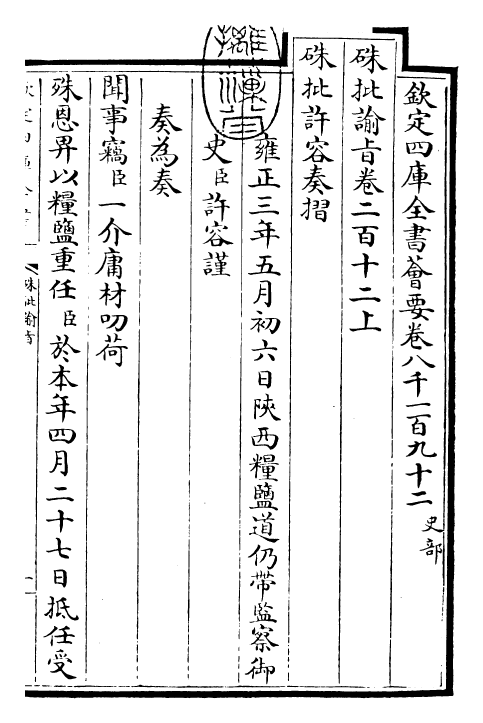 欽定四庫全書薈要卷八千一百九十二 史部
硃批諭旨卷二百十二上
硃批許容奏摺
雍正三年五月初六日陝西糧鹽道仍帶監察御
史臣許容謹
奏為奏
聞事竊臣一介庸材叨荷
殊恩畀以糧鹽重任臣於本年四月二十七日抵任受
硃批諭旨
一